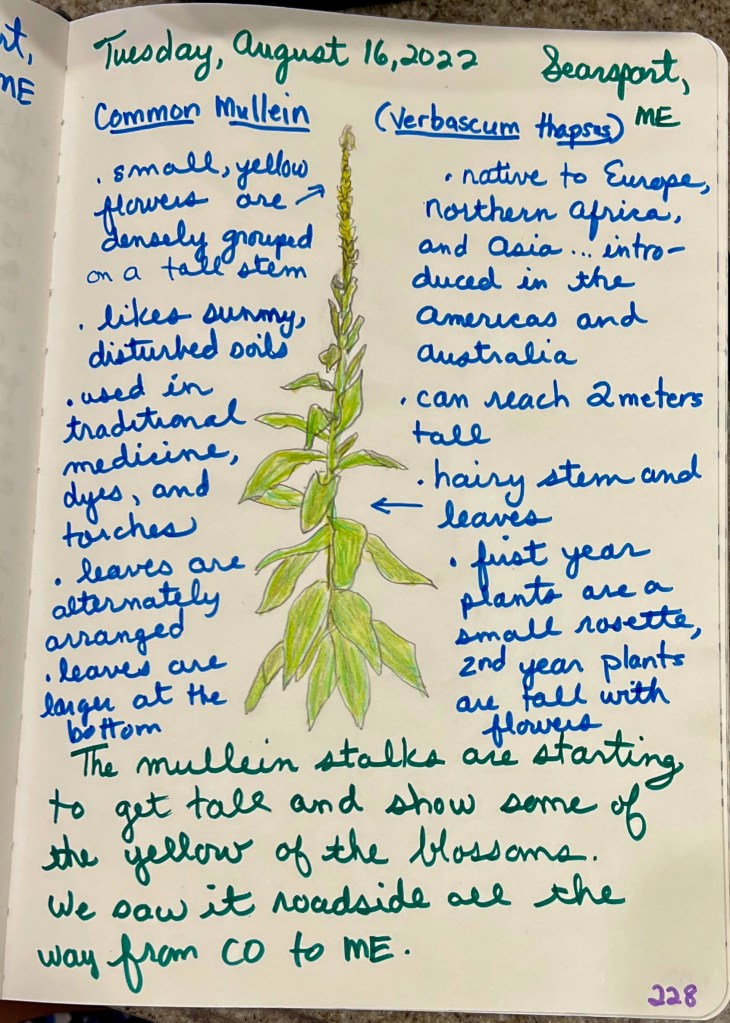 rt,
ME
Tuesday, August 16, 2022
Searsport,
ME
Common Mullein
(Verbascum thapsus)
. small, yellow
flowers are
densely grouped
on a tall stem
. likes sunny,
disturbed soils
. used in
traditional
medicine,
dyes, and
torches
. leaves are
alternately
arranged
. leaves are
larger at the
bottom
. native to Europe,
Northern Africa,
and Asia... intro-
duced in the
Americas and
Australia
. can reach 2 meters
tall
. hairy stem and
leaves
. first year
plants are a
small rosette,
2nd year plants
are tall with
flowers
The mullein stalks are starting
to get tall and show some of
the yellow of the blossoms.
We saw it roadside all the
way from CO to ME.
228